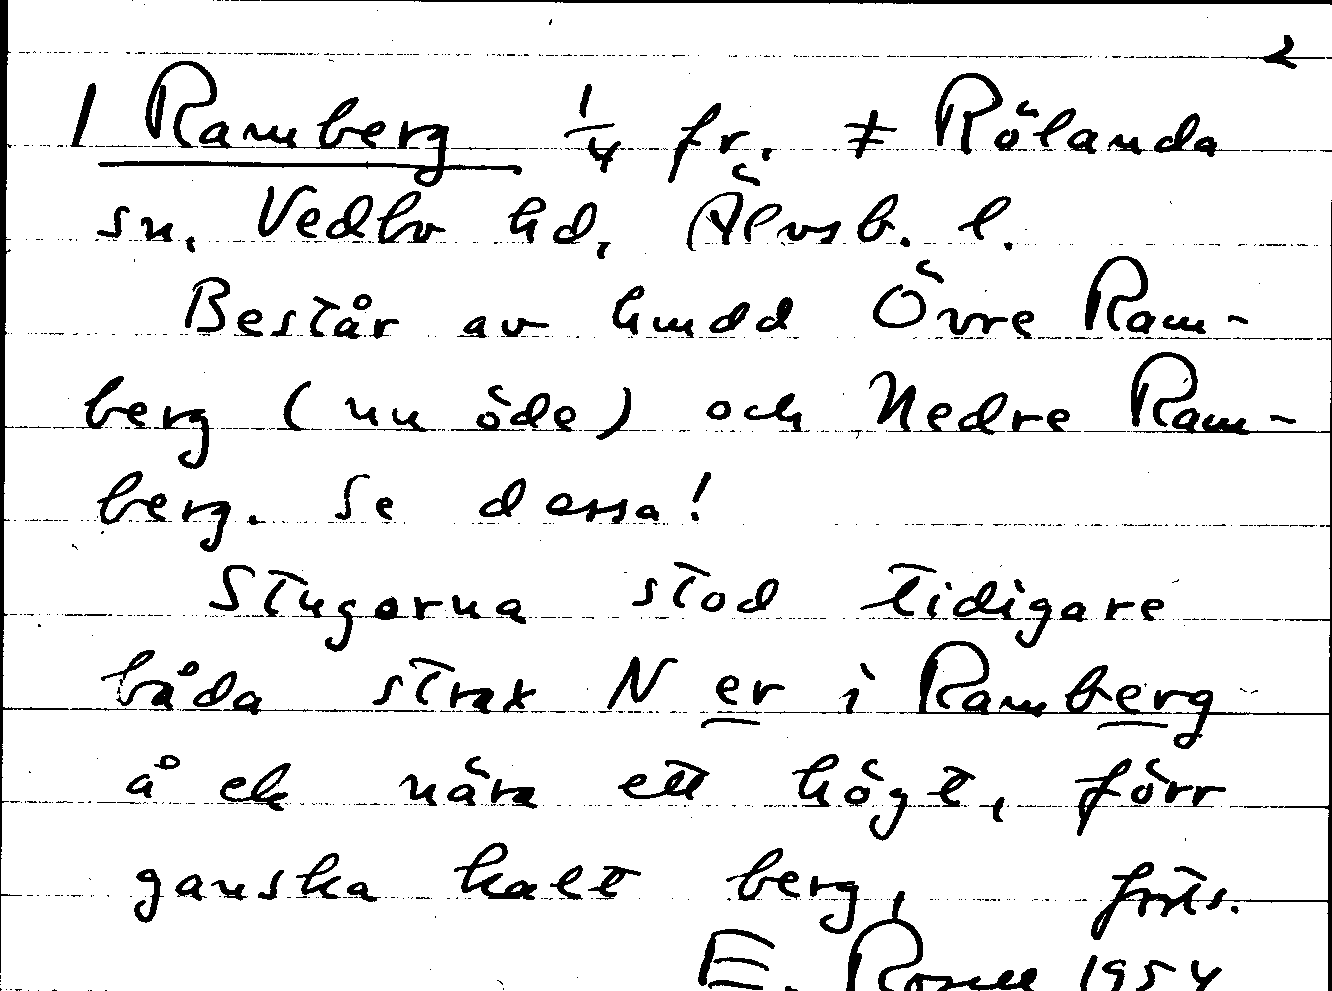 2
1 Ramberg 1/4 fr. ‡ Rölanda
sn. Vedbo hd, Älvsb. l.
Består av hmdd Övre Ram-
berg (nu öde) och Nedre Ram-
berg. Se dessa!
Stugorna stod tidigare
båda strax N er i Ramberg
å ek nära ett högt, förr
ganska kalt berg, forts.
E. Rosell 1954